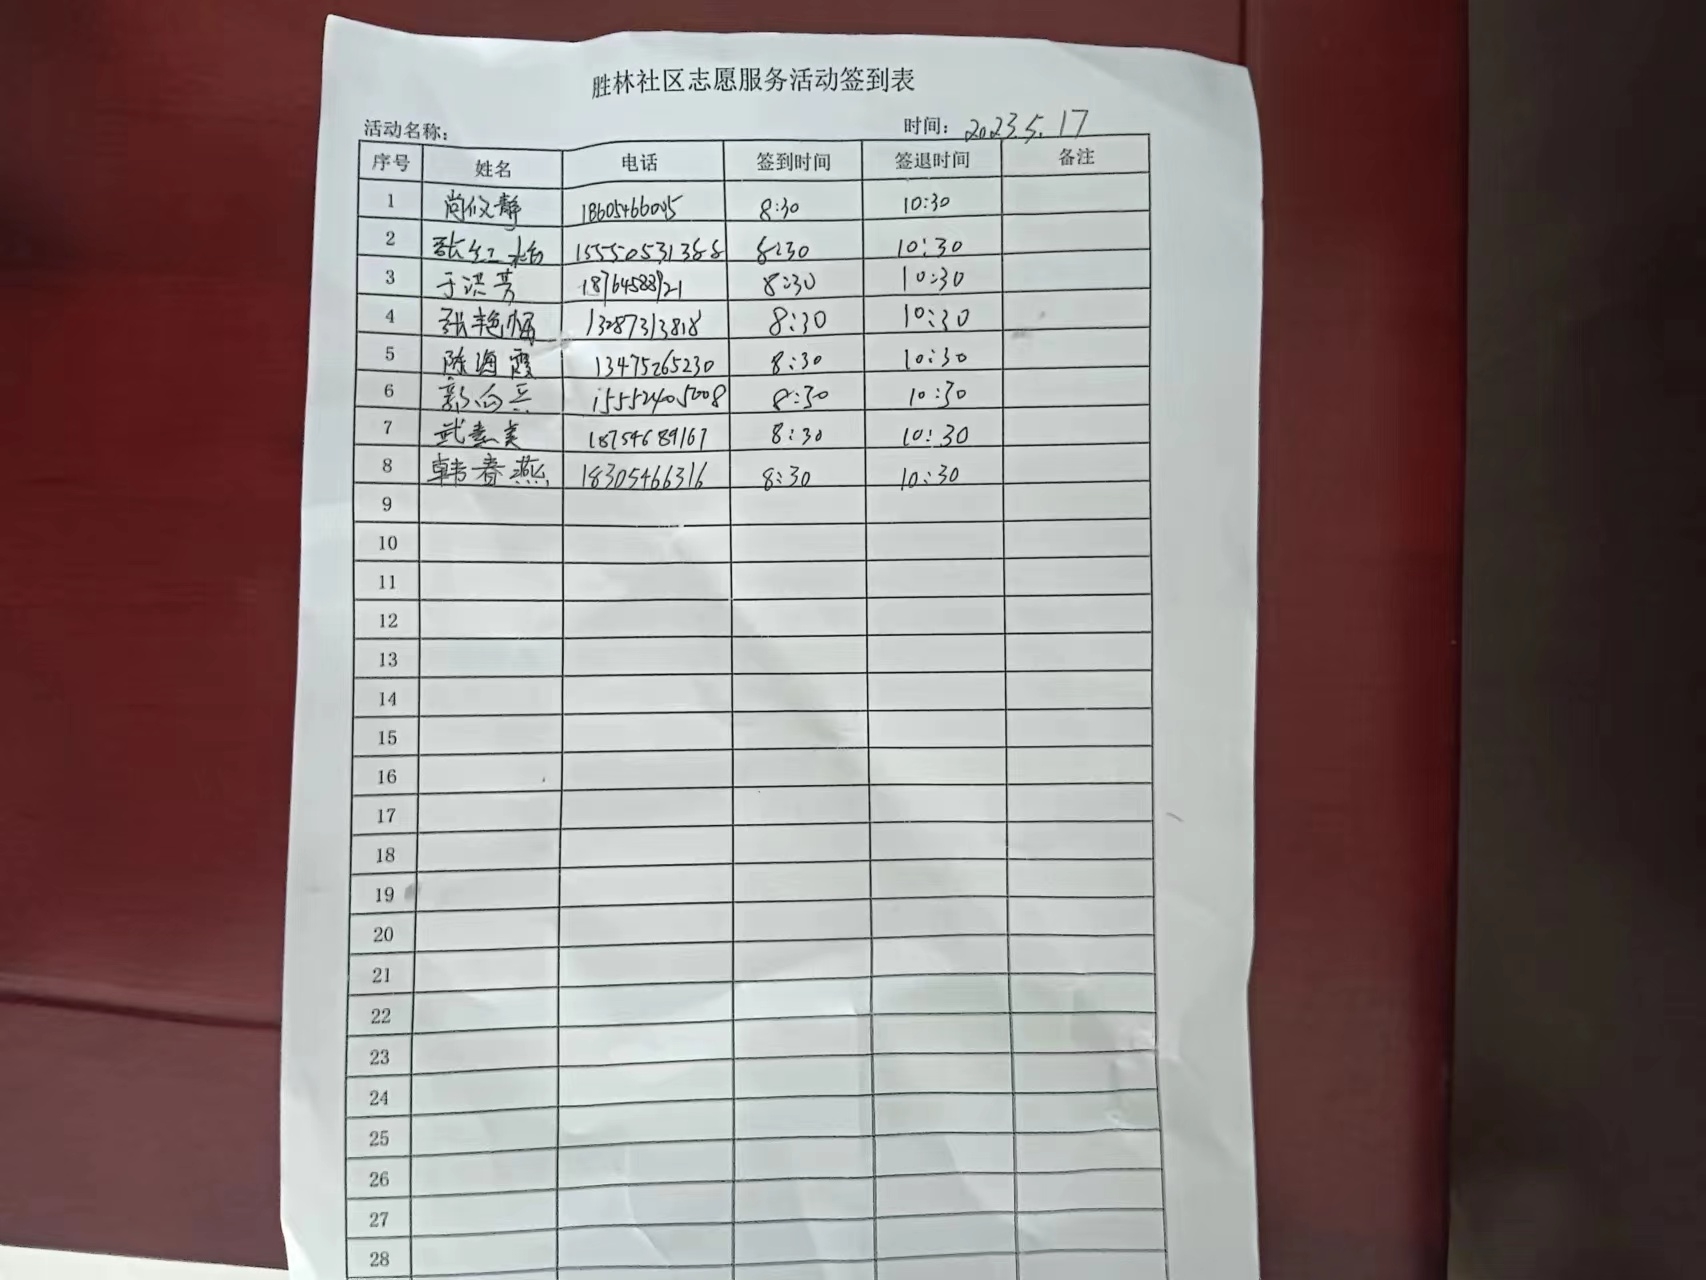 胜林社区志愿服务活动签到表
活动名称： 时间：2023.5.17
序号 姓名 电话 签到时间 签退时间 备注
1 尚仪静 18605466045 8:30 10:30
2 15550531388 8:30 10:30
3 于洪芳 18764588921 8:30 10:30
4 13287313818 8:30 10:30
5 陈海霞 13475265230 8:30 10:30
6 郭向兵 15552405008 8:30 10:30
7 18754689167 8:30 10:30
8 韩春燕 18305466316 8:30 10:30
9
10
11
12
13
14
15
16
17
18
19
20
21
22
23
24
25
26
27
28